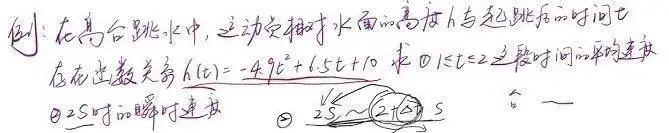 例:在高台跳水中,运动员相对水面的高度h与起跳后的时间t
存在函数关系 h(t)=-4.9t²+6.5t+10 求 ① 1≤t≤2 这段时间的平均速度
② 2S时的瞬时速度 ② 2S ~ (2+Δt) S